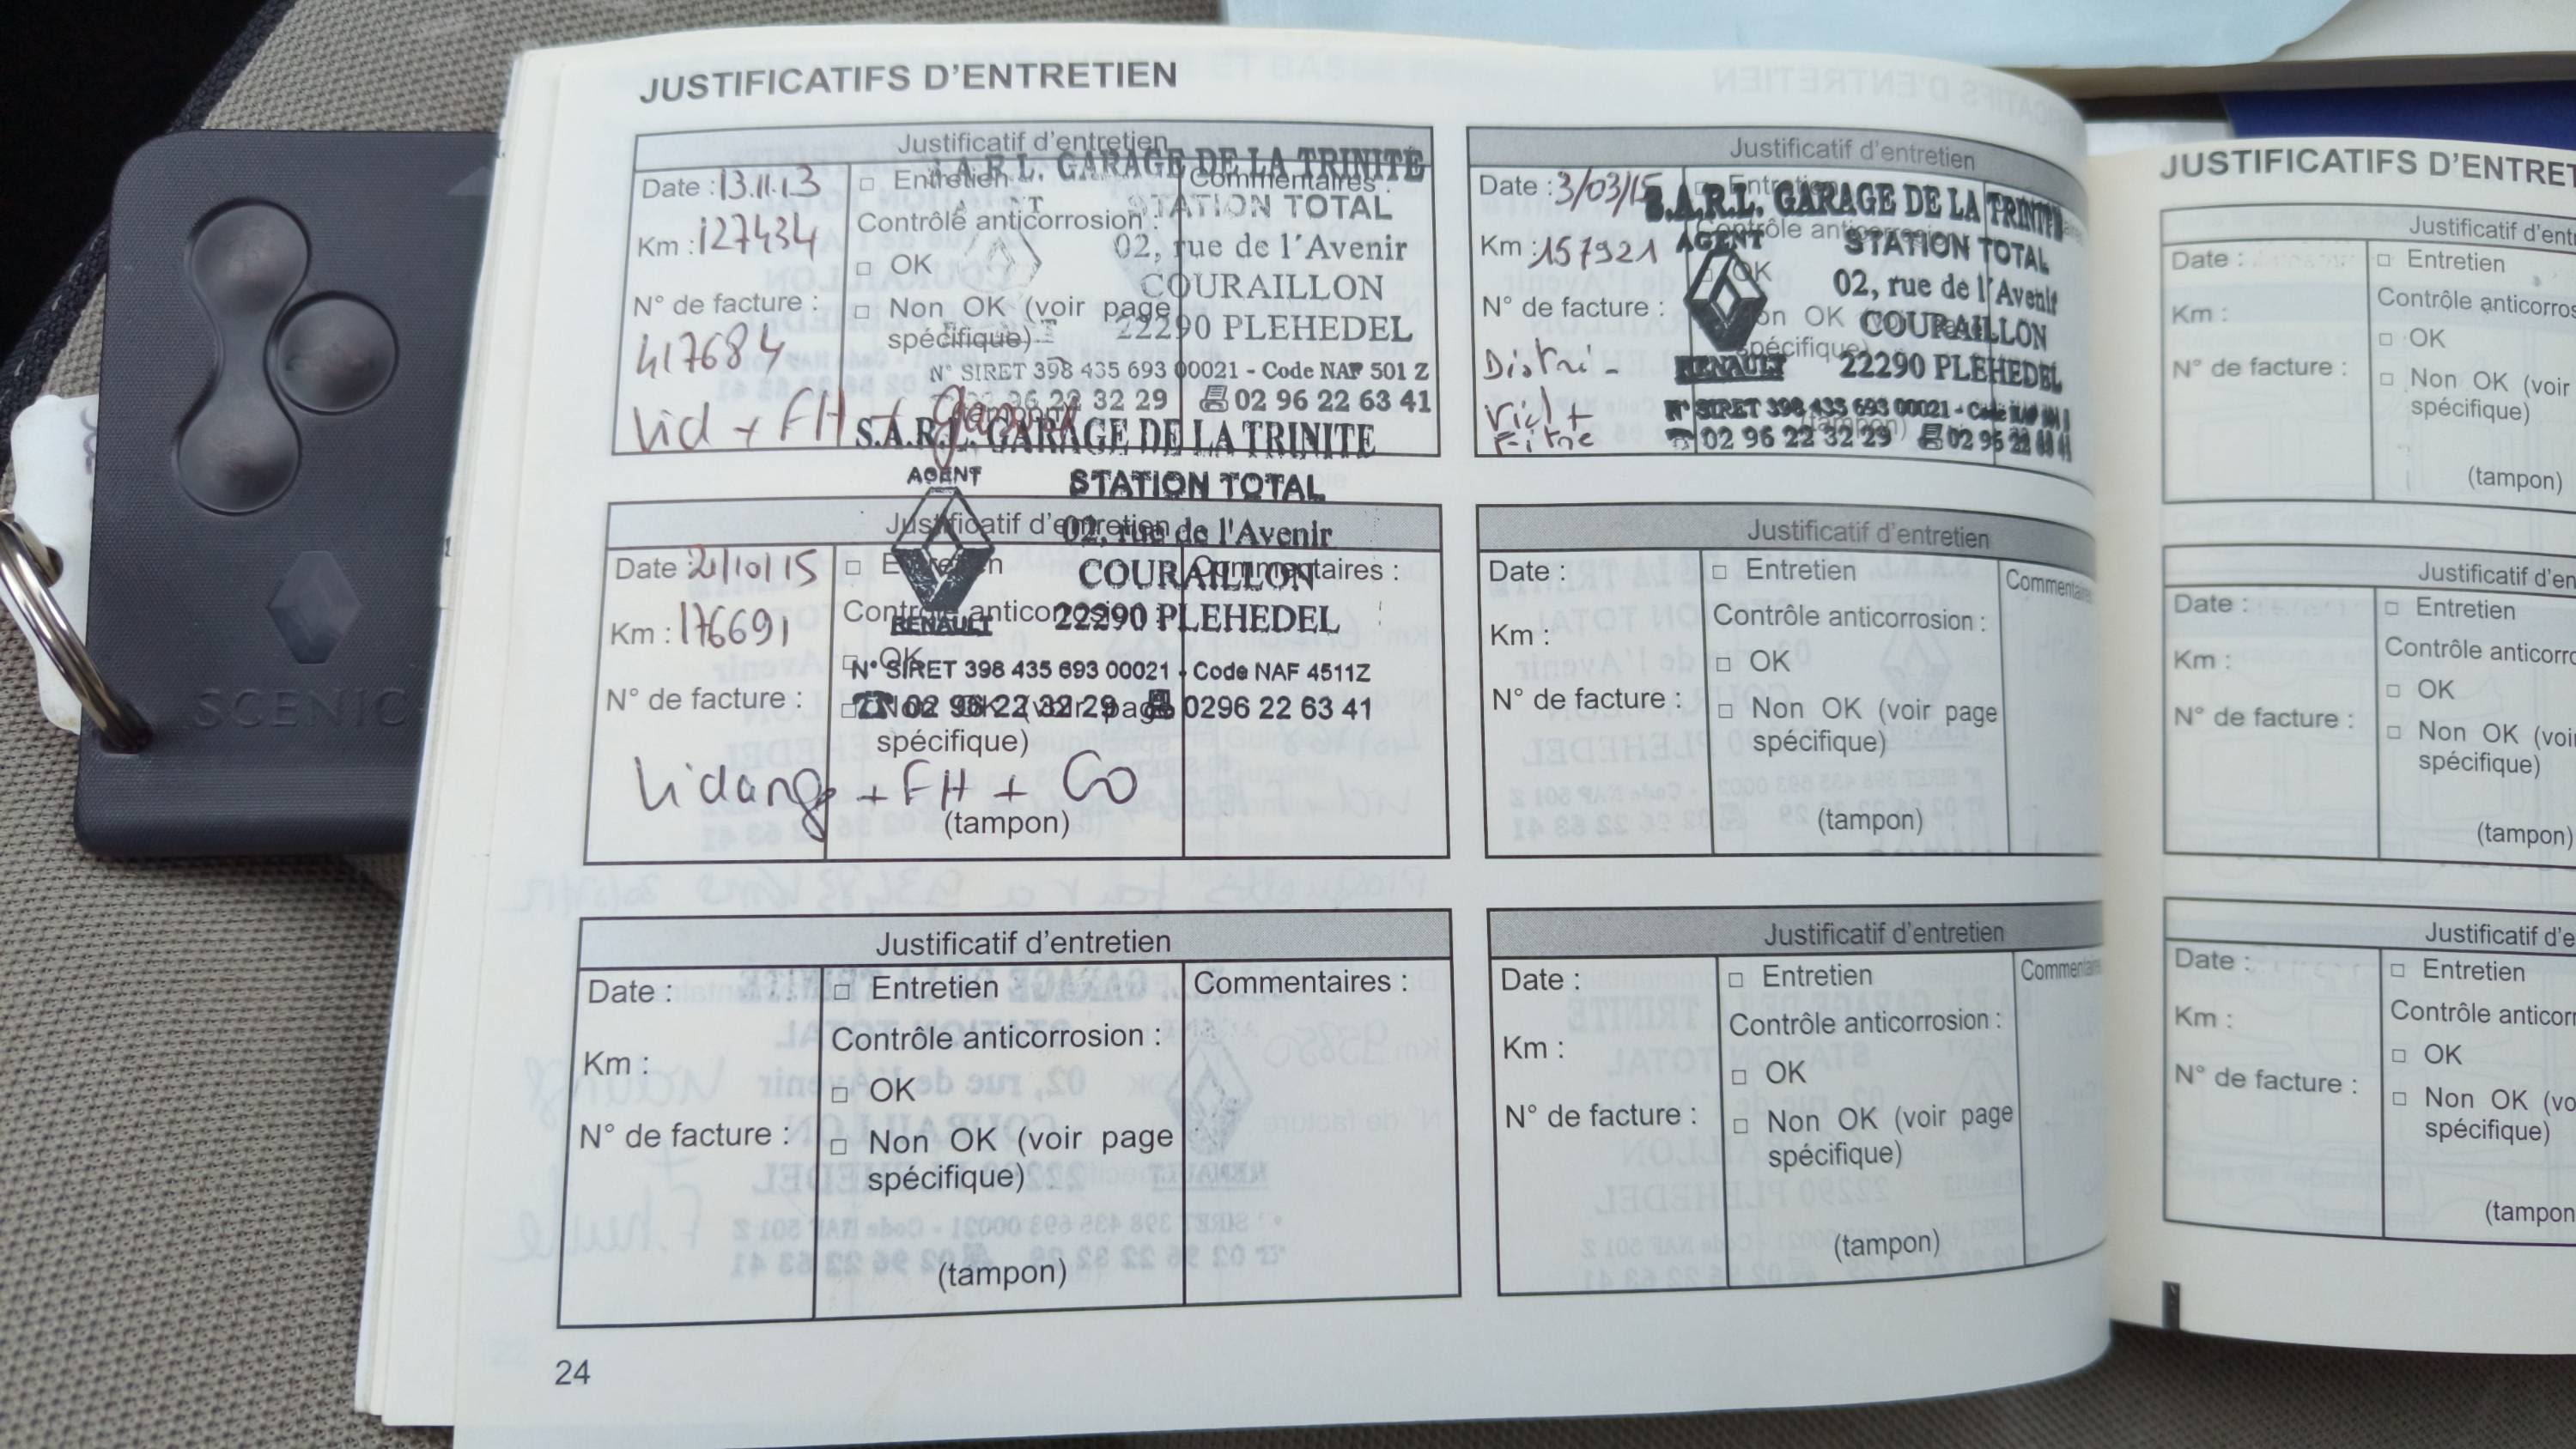 JUSTIFICATIFS D'ENTRETIEN
Justificatif d'entretien
Date : 13.11.13
Km : 127434
N° de facture :
417684
Vid + FH +
□ Entretien
Contrôle anticorrosion :
□ OK
□ Non OK (voir page
spécifique)
Commentaires :
S.A.R.L. GARAGE DE LA TRINITE
STATION TOTAL
02, rue de l'Avenir
COURAILLON
22290 PLEHEDEL
N° SIRET 398 435 693 00021 - Code NAF 501 Z
02 96 22 32 29 02 96 22 63 41
Justificatif d'entretien
Date : 3/03/15
Km : 157921
N° de facture :
Distri -
Vid +
Filtre
□ Entretien
Contrôle anticorrosion
□ OK
Non OK
spécifique)
(tampon)
S.A.R.L. GARAGE DE LA TRINITE
AGENT
STATION TOTAL
02, rue de l'Avenir
COURAILLON
RENAULT 22290 PLEHEDEL
N° SIRET 398 435 693 00021 - Code NAF
02 96 22 32 29 02 96 22 63 41
Justificatif d'entretien
Date : 21/10/15
Km : 176691
N° de facture :
Vidange + FH + Co
□ Entretien
Contrôle anticorrosion
□ OK
□ Non OK (voir page
spécifique)
(tampon)
Commentaires :
S.A.R.L. GARAGE DE LA TRINITE
AGENT
STATION TOTAL
02, rue de l'Avenir
COURAILLON
RENAULT 22290 PLEHEDEL
N° SIRET 398 435 693 00021 - Code NAF 4511Z
02 96 22 32 29 0296 22 63 41
Justificatif d'entretien
Date :
Km :
N° de facture :
□ Entretien
Contrôle anticorrosion :
□ OK
□ Non OK (voir page
spécifique)
(tampon)
Justificatif d'entretien
Date :
Km :
N° de facture :
□ Entretien
Contrôle anticorrosion :
□ OK
□ Non OK (voir page
spécifique)
(tampon)
Commentaires :
Justificatif d'entretien
Date :
Km :
N° de facture :
□ Entretien
Contrôle anticorrosion :
□ OK
□ Non OK (voir page
spécifique)
(tampon)
24
JUSTIFICATIFS D'ENTRET
Justificatif d'ent
Date :
Km :
N° de facture :
□ Entretien
Contrôle anticorros
□ OK
□ Non OK (voir
spécifique)
(tampon)
Justificatif d'en
Date :
Km :
N° de facture :
□ Entretien
Contrôle anticorro
□ OK
□ Non OK (voi
spécifique)
(tampon)
Justificatif d'e
Date :
Km :
N° de facture :
□ Entretien
Contrôle anticor
□ OK
□ Non OK (vo
spécifique)
(tampon
SCENIC